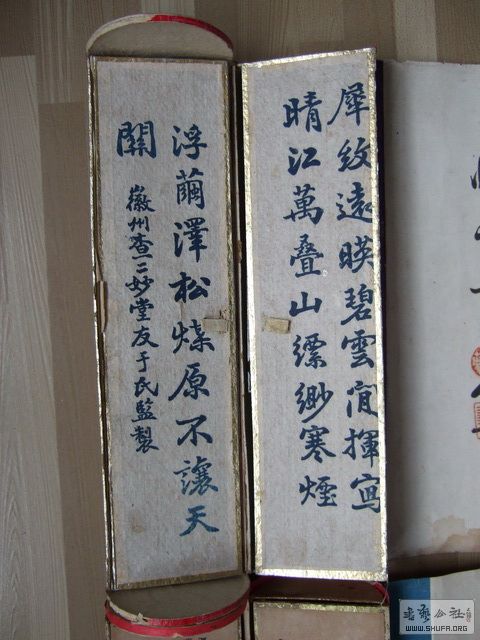 犀紋遠暎碧雲間揮寫
晴江萬叠山縹緲寒煙
浮蘭澤松煤原不讓天
關
徽州查二妙堂友于氏監製
WWW.SHUFA.ORG